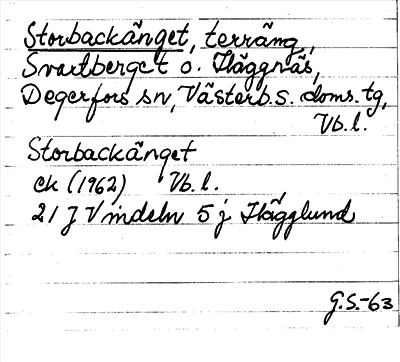 Storbackänget, terräng,
Svartberget o. Häggnäs,
Degerfors sn, Västerb.s. doms. tg,
Vb.l.
Storbackänget
ek (1962) Vb.l.
21 J Vindeln 5 j Hägglund
G.S.-63